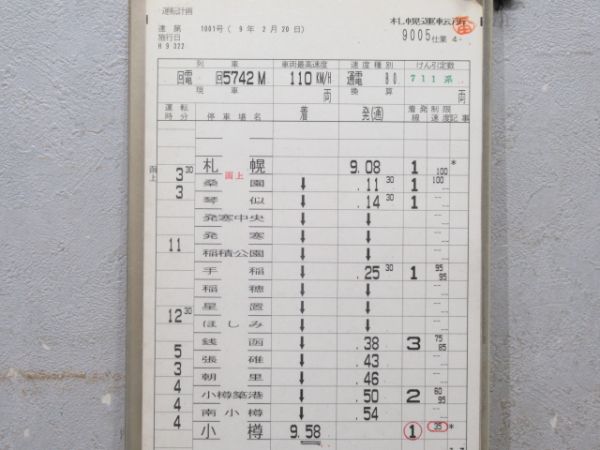 運転計画
達第 1001号(9年 2月 20日)
施行日
H 9 322
札幌運転所
9005仕業 4-
列車 車両最高速度 速度種別 けん引定数
回電 回5742M 110KM/H 通電 B0 711系
現車 両 換算 両
運転時分 停車場名 着 発(通) 着発線 制限速度 記事
函上 3 30 札幌 函上 9.08 1 100 *
3 桑園 ↓ .11 30 1 100
琴似 ↓ .14 30 1
発寒中央 ↓ ↓
11 発寒 ↓ ↓
稲積公園 ↓ ↓
手稲 ↓ .25 30 1 95 95
稲穂 ↓ ↓
星置 ↓ ↓
12 30 ほしみ ↓ ↓
銭函 ↓ .38 3 75 85
5 張碓 ↓ .43
3 朝里 ↓ .46
4 小樽築港 ↓ .50 2 60 95
4 南小樽 ↓ .54
4 小樽 9.58 1 35 *